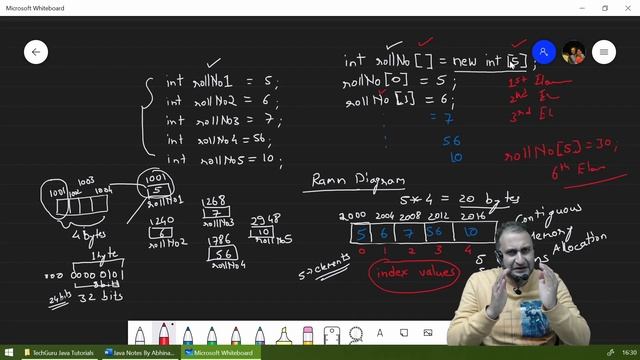 Microsoft Whiteboard
int rollNo1 = 5;
int rollNo2 = 6;
int rollNo3 = 7;
int rollNo4 = 56;
int rollNo5 = 10;
int rollNo[] = new int [5];
rollNo[0] = 5;
rollNo[1] = 6;
= 7
56
10
1st Elem
2nd El
3rd El
rollNo[5] = 30;
6th Elem
1001
1002
1003
1004
4 bytes
1001
5
rollNo1
1240
6
rollNo2
1268
7
rollNo3
1786
56
rollNo4
2948
10
rollNo5
1 byte
0000 0101
8 bits
24 bits
32 bits
Ramm Diagram
5*4 = 20 bytes
2000 2004 2008 2012 2016
5 6 7 56 10
0 1 2 3 4
5 elements
index values
Contiguous
Memory
Allocation
5
TechGuru Java Tutorials
Java Notes By Abhina...
Microsoft Whiteboard
16:30